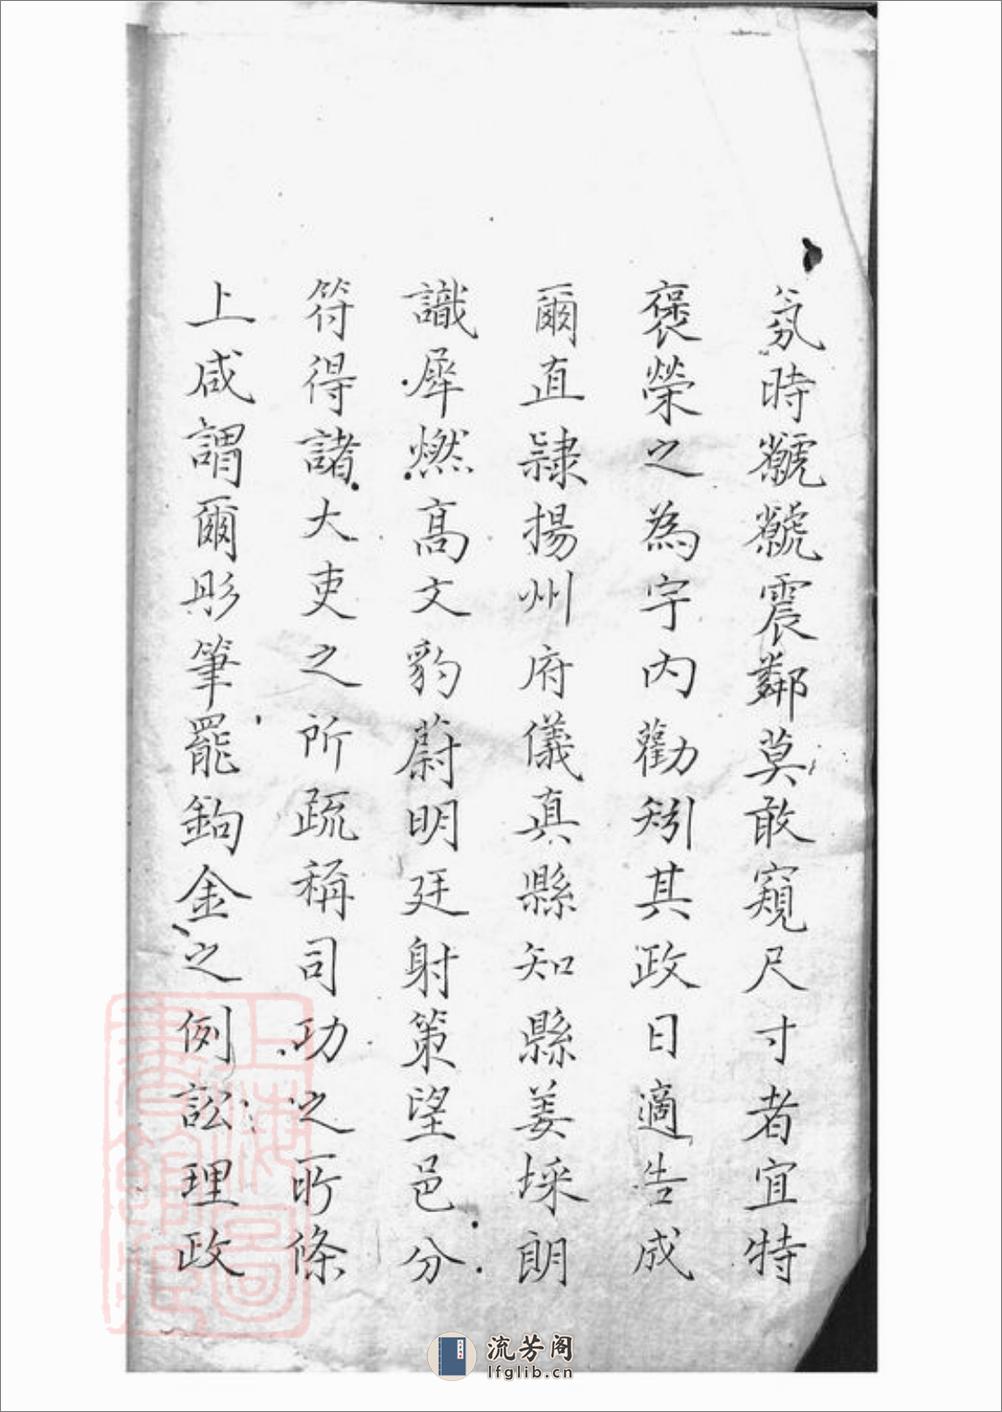 氛時虩虩震鄰莫敢窺尺寸者宜特
褒榮之為宇内勸矧其政日適告成
爾直隷揚州府儀真縣知縣姜埰朗
識犀燃高文豹蔚明廷射策望邑分
符得諸大吏之所疏稱司功之所條
上咸謂爾彤筆罷鉤金之例訟理政
上海圖書館藏
流芳阁
lfglib.cn